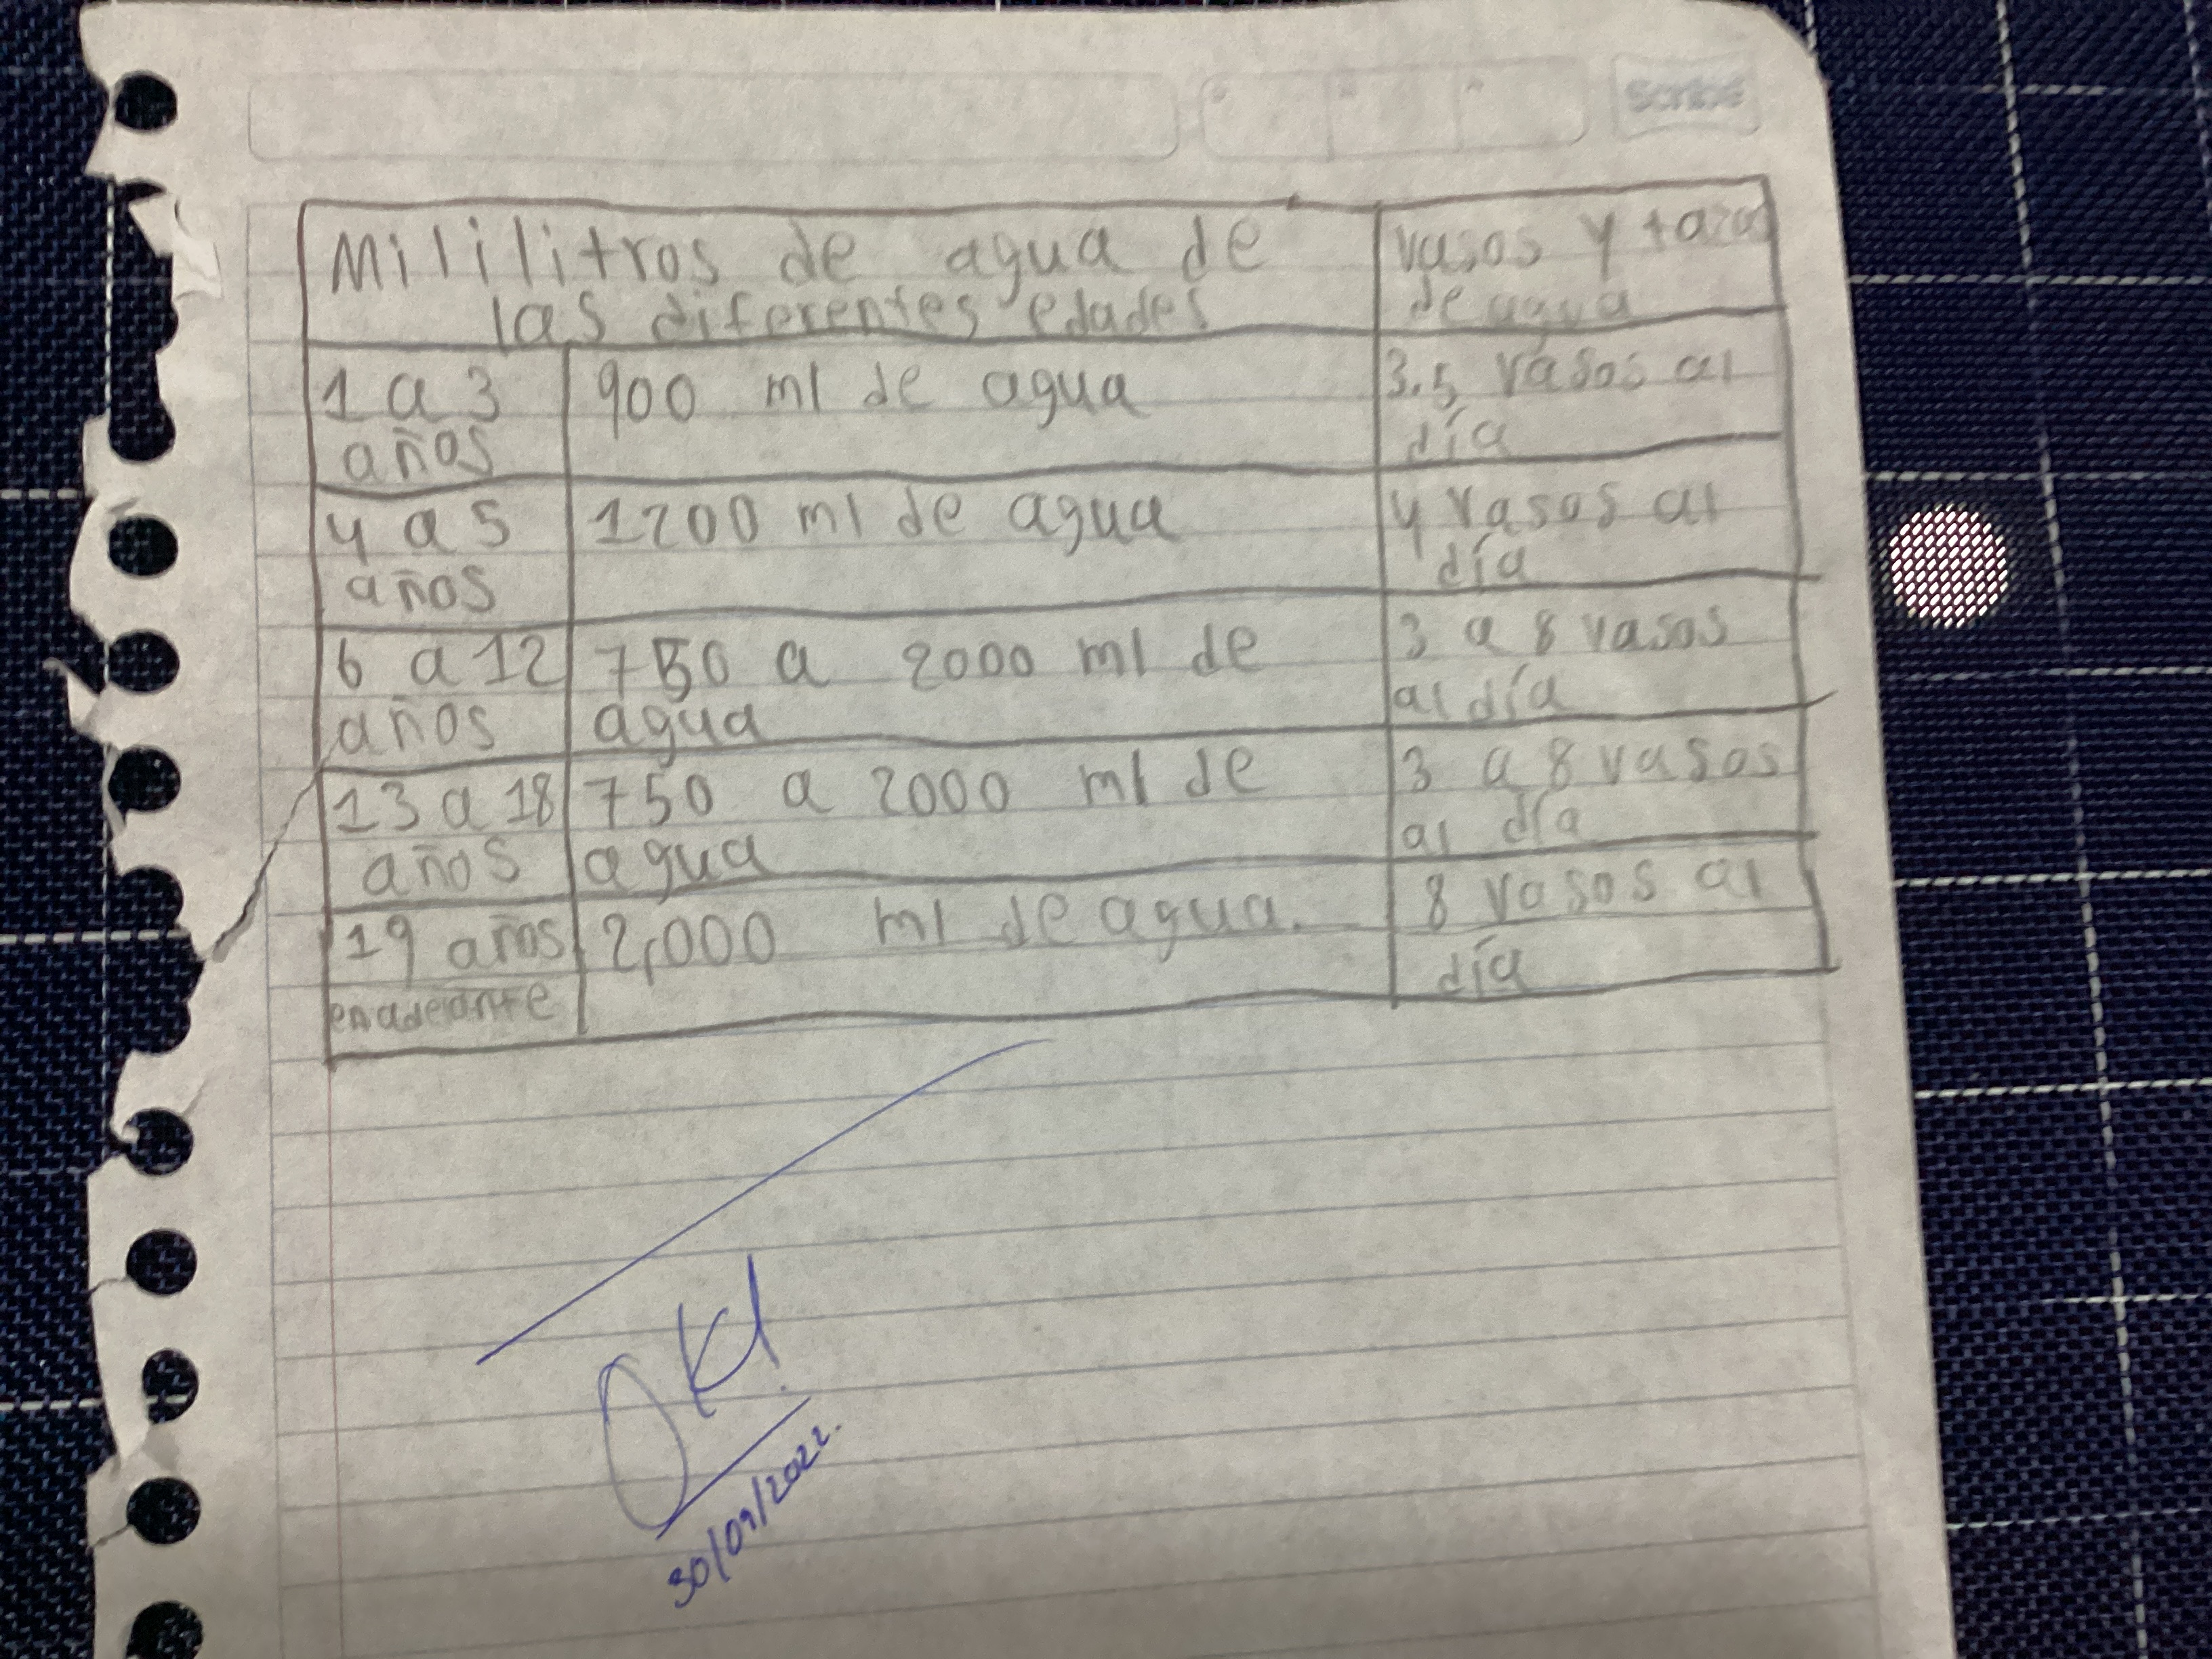 scribe
Mililitros de agua de
las diferentes edades
vasos y tazas
de agua
1 a 3
años
900 ml de agua
3.5 vasos al
día
4 a 5
años
1200 ml de agua
4 vasos al
día
6 a 12
años
750 a 2000 ml de
agua
3 a 8 vasos
al día
13 a 18
años
750 a 2000 ml de
agua
3 a 8 vasos
al día
19 años
en adelante
2,000 ml de agua.
8 vasos al
día
OK!
30/09/2022.